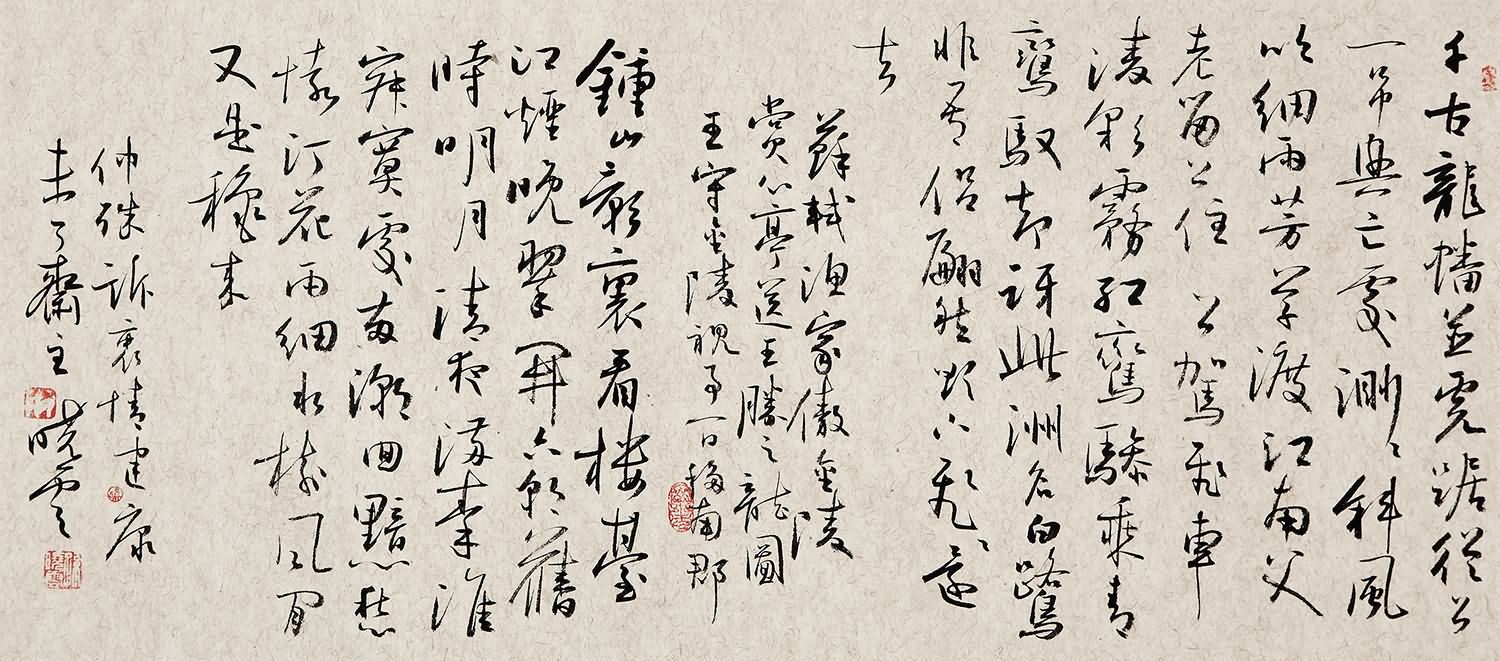 千古龍蟠並虎踞從公
一吊興亡處渺渺斜風
吹細雨芳草渡江南父
老留公住公駕飛車
凌彩霧紅鸞驂乘青
鸞馭却訝此洲名白鷺
非吾侶翩然欲下飛飛還
去
蘇軾漁家傲金陵
賞心亭送王勝之龍圖
王守金陵視事一日移南郡
鍾山影裏看樓臺
江煙晚翠開六朝舊
時明月清夜滿秦淮
寂寞處兩潮回黯愁
懷汀花雨細水樹風閒
又是穐來
仲殊訴衷情建康
未了齋主曉雲